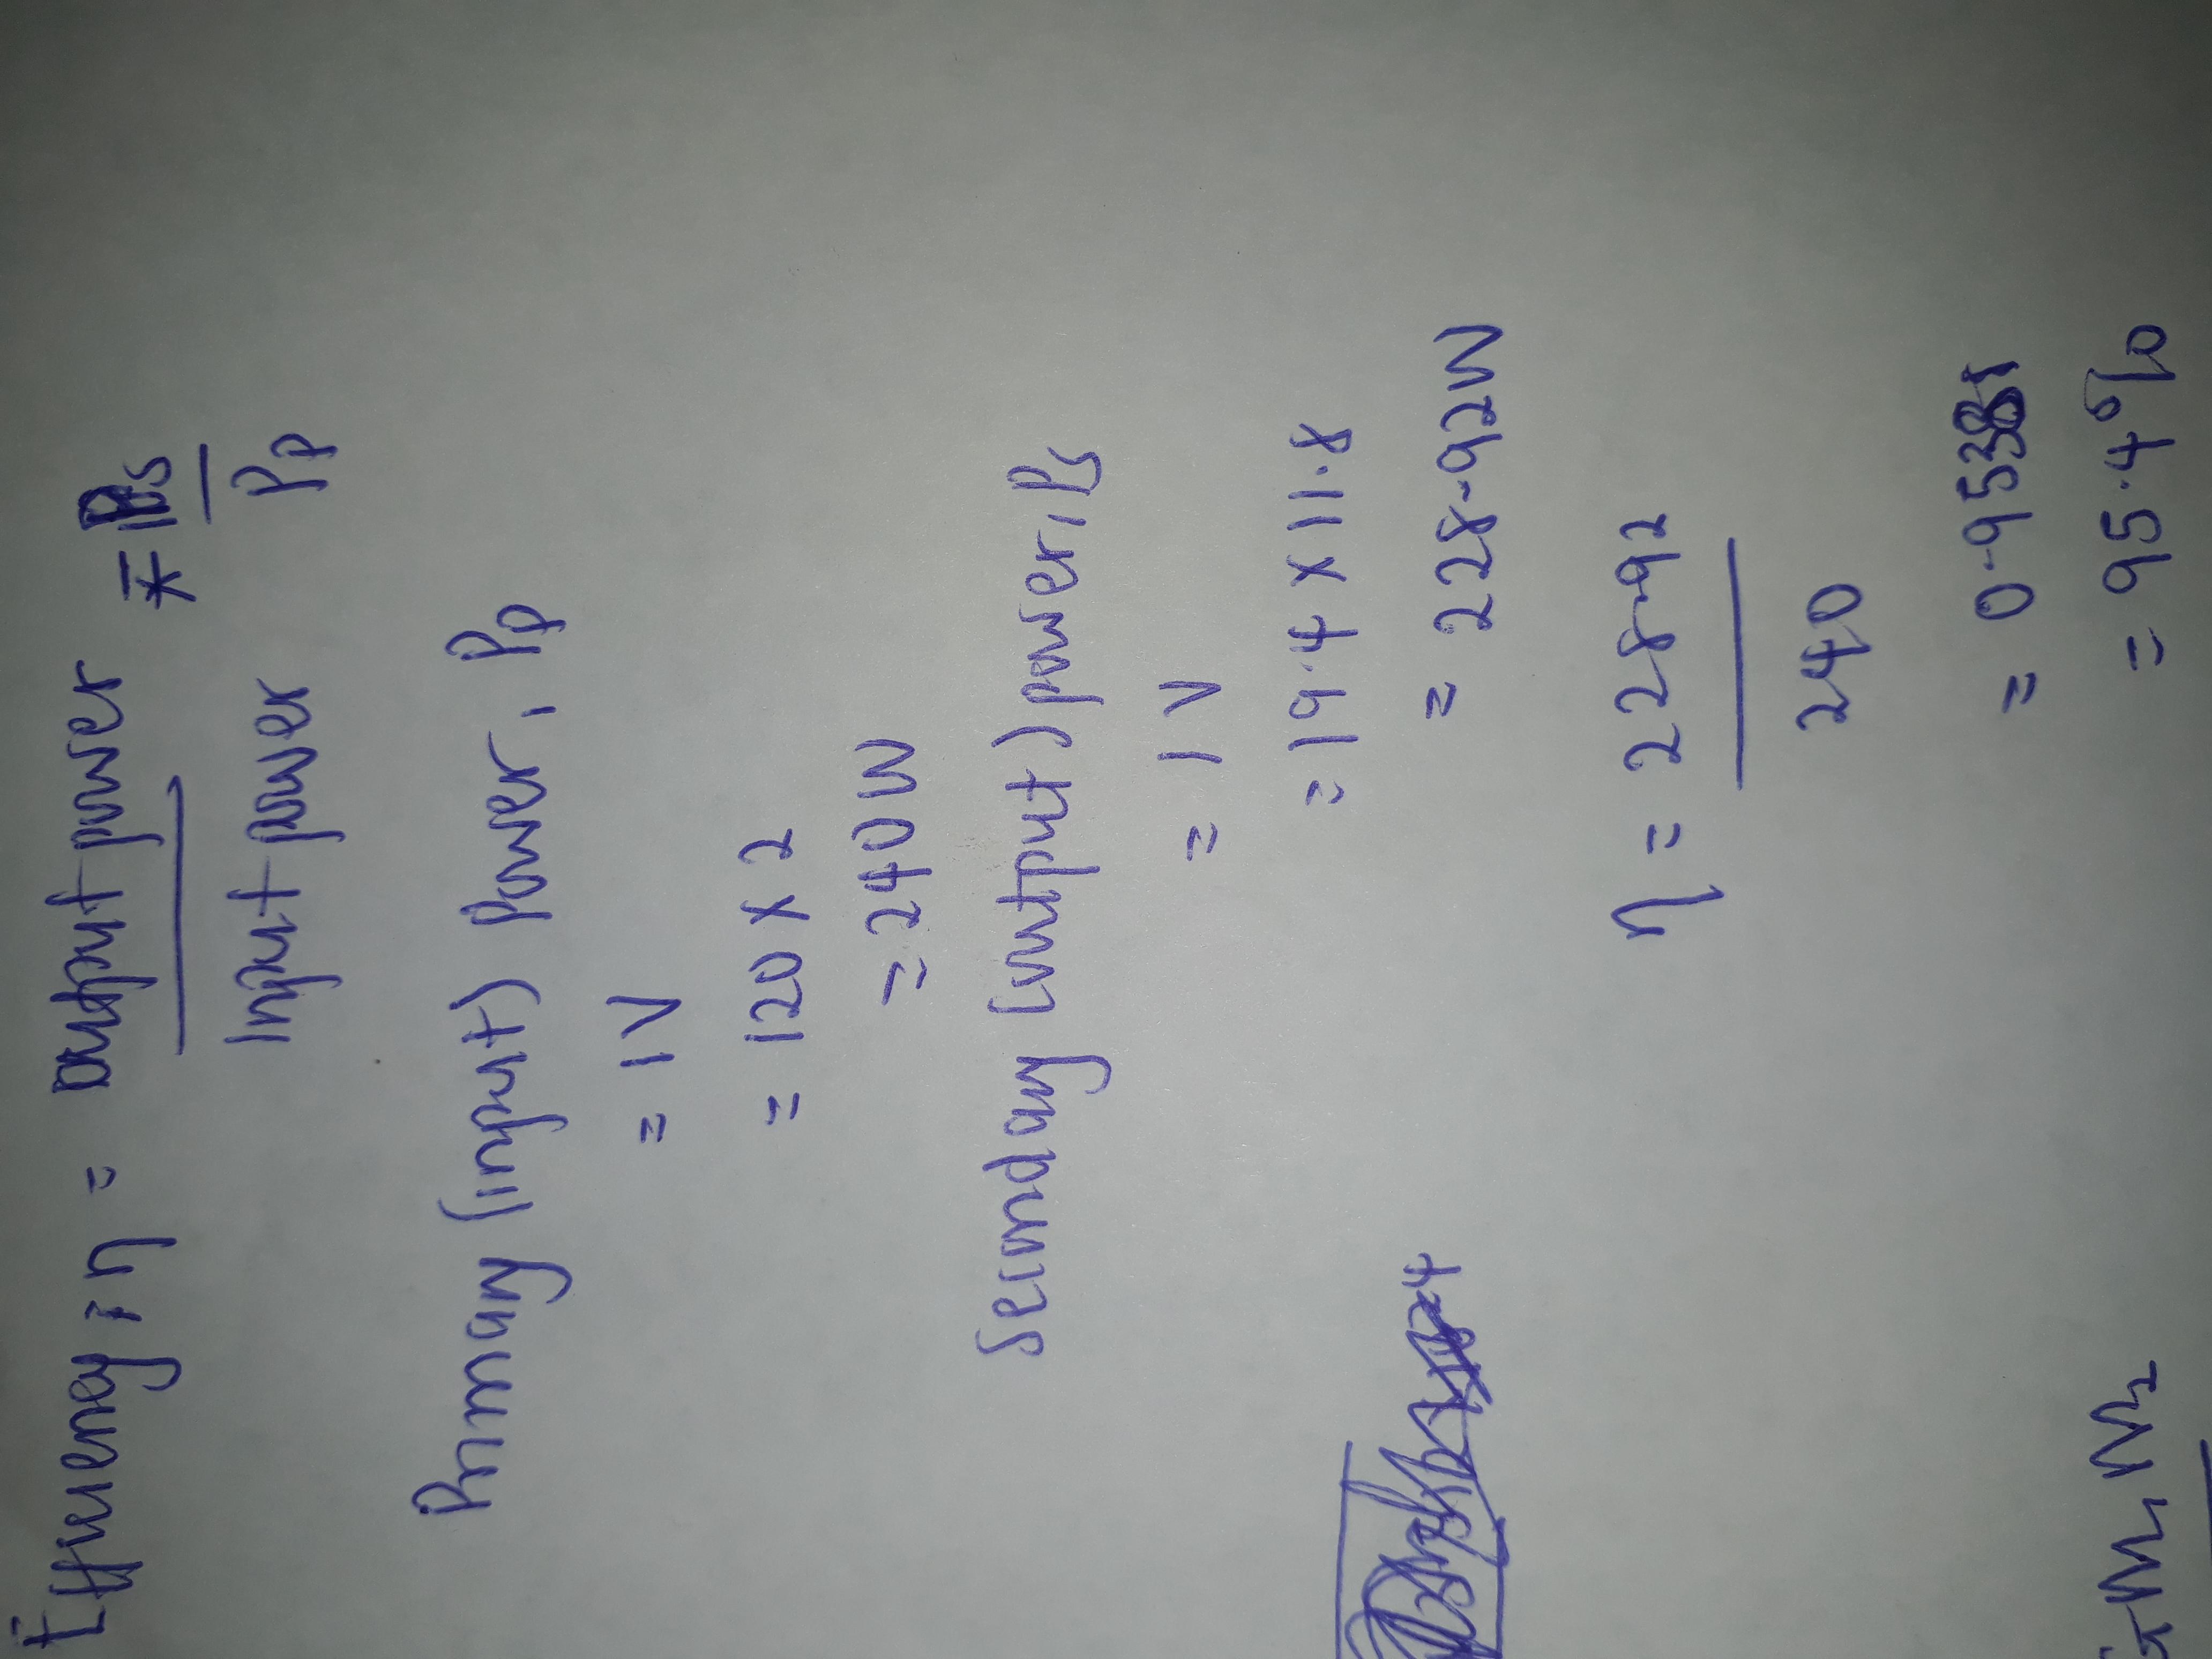 Efficiency, η = output power = Ps
input power Pp
Primary (input) power, Pp
= IV
= 120 x 2
= 240W
Secondary (output) power, Ps
= IV
= 19.4 x 11.8
= 228.92W
η = 228.92
240
= 0.9538
= 95.4%